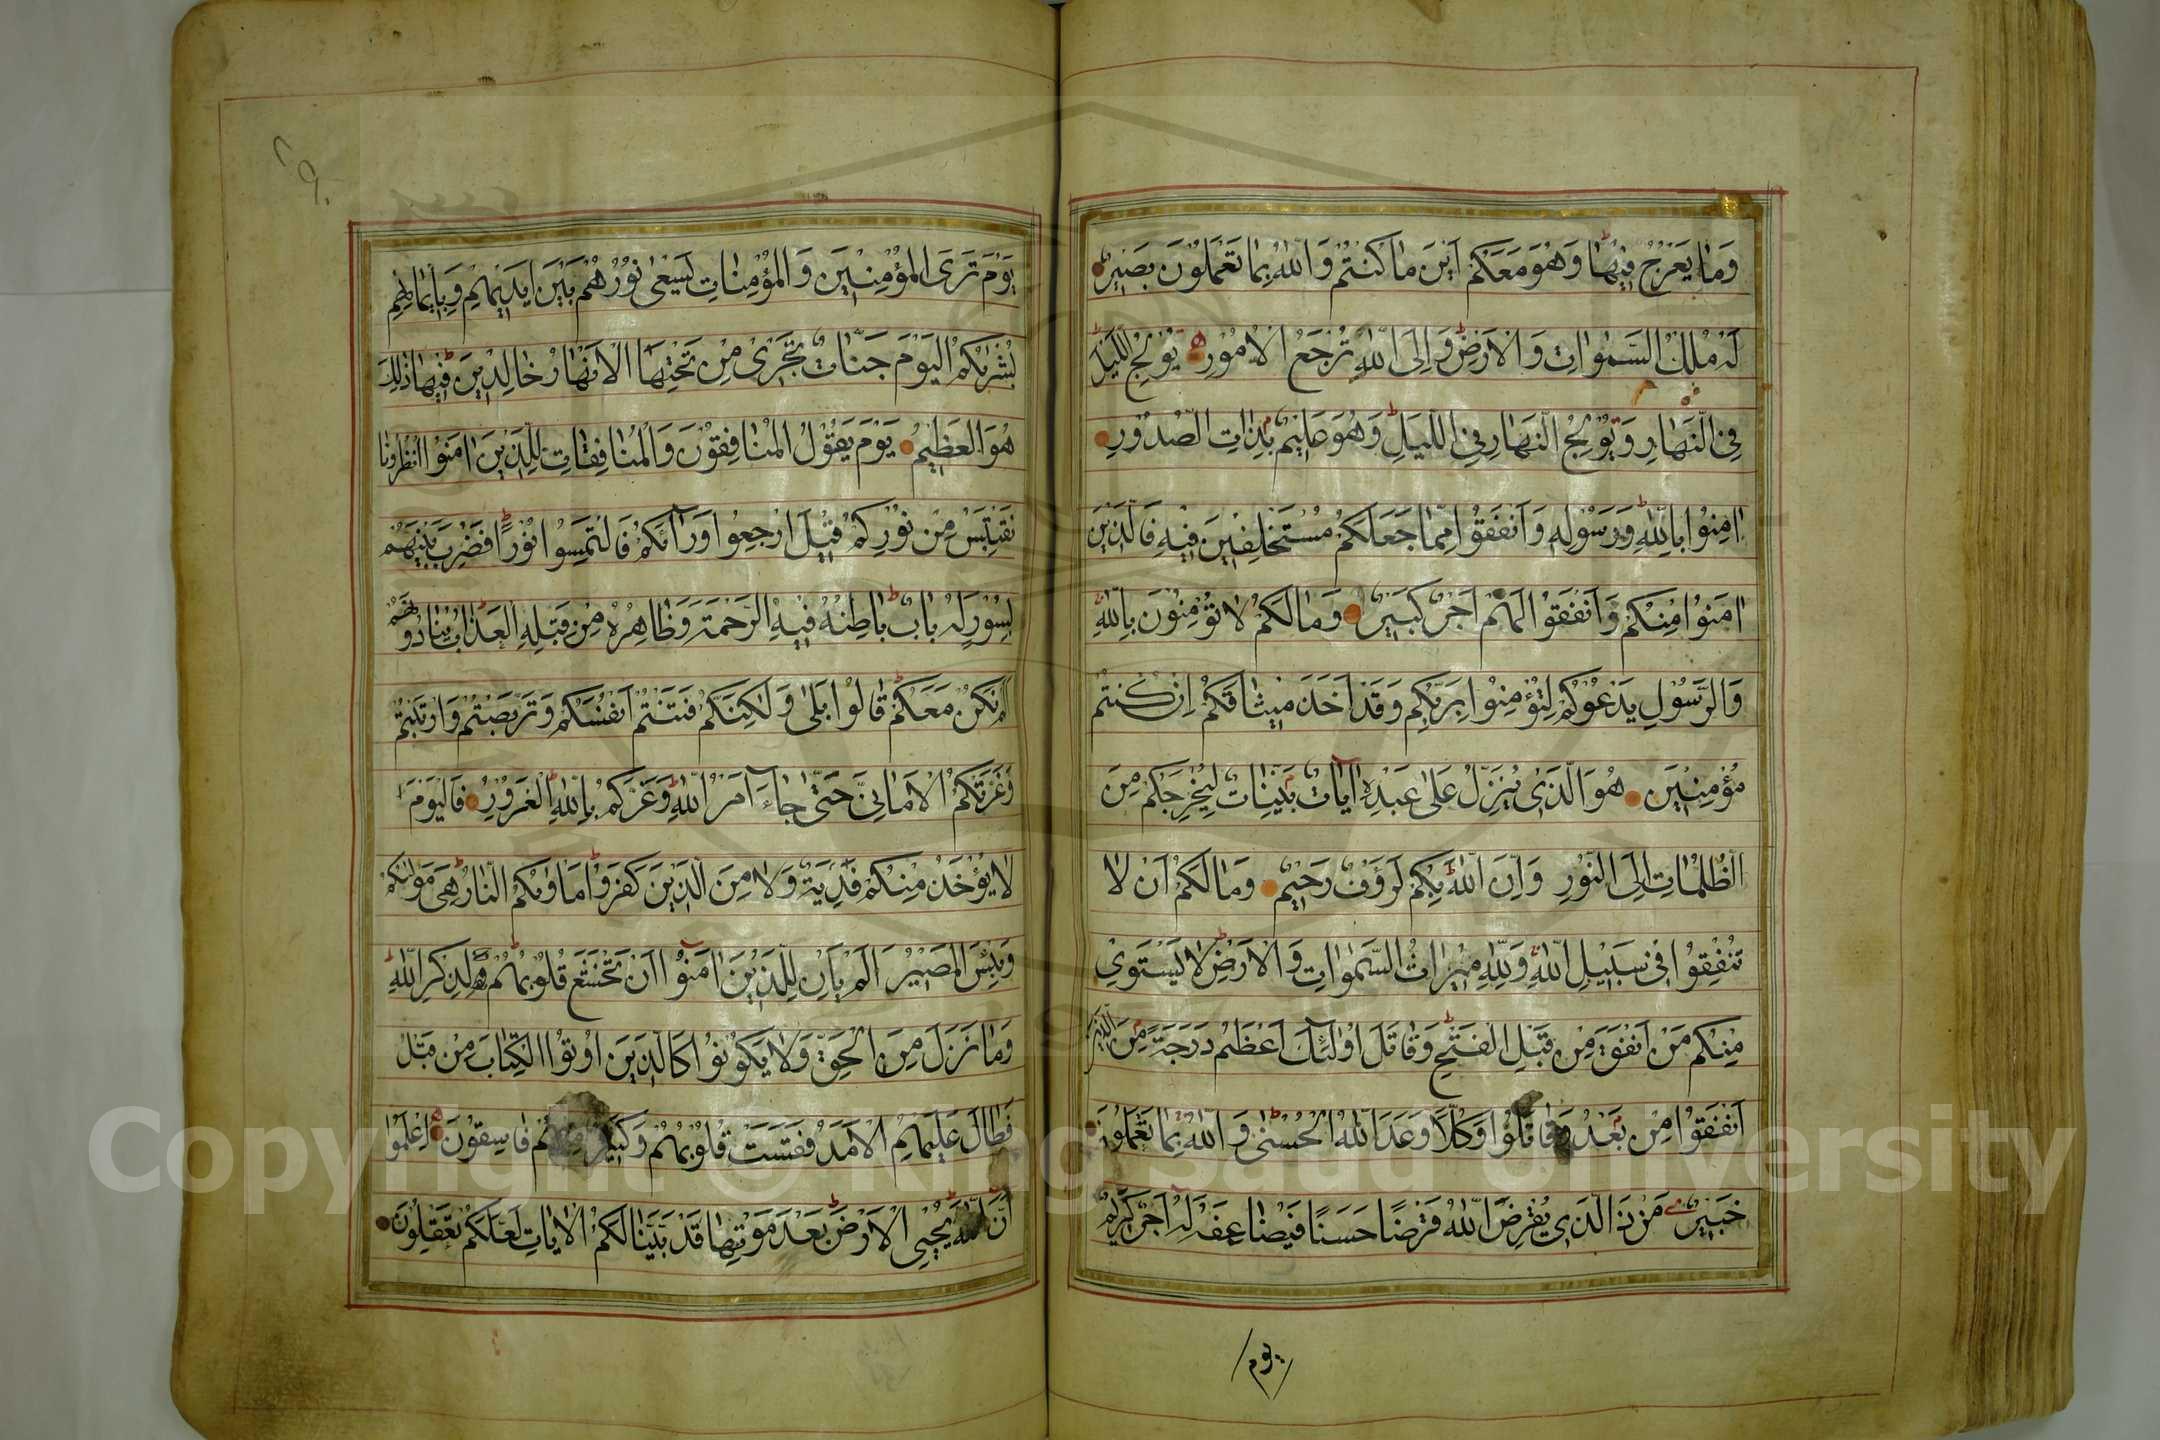 وَمَا يَعْرُجُ فِيْهَا وَهُوَ مَعَكُمْ اَيْنَ مَا كُنْتُمْ وَاللّٰهُ بِمَا تَعْمَلُوْنَ بَصِيْرٌ
لَهُ مُلْكُ السَّمٰوَاتِ وَالْاَرْضِ وَاِلَى اللّٰهِ تُرْجَعُ الْاُمُوْرُ يُوْلِجُ اللَّيْلَ
فِى النَّهَارِ وَيُوْلِجُ النَّهَارَ فِى اللَّيْلِ وَهُوَ عَلِيْمٌ بِذَاتِ الصُّدُوْرِ
اٰمِنُوْا بِاللّٰهِ وَرَسُوْلِهِ وَاَنْفِقُوْا مِمَّا جَعَلَكُمْ مُسْتَخْلَفِيْنَ فِيْهِ فَالَّذِيْنَ
اٰمَنُوْا مِنْكُمْ وَاَنْفَقُوْا لَهُمْ اَجْرٌ كَبِيْرٌ وَمَا لَكُمْ لَا تُؤْمِنُوْنَ بِاللّٰهِ
وَالرَّسُوْلِ يَدْعُوْكُمْ لِتُؤْمِنُوْا بِرَبِّكُمْ وَقَدْ اَخَذَ مِيْثَاقَكُمْ اِنْ كُنْتُمْ
مُؤْمِنِيْنَ هُوَ الَّذِىْ يُنَزِّلُ عَلٰى عَبْدِهِ اٰيَاتٍ بَيِّنَاتٍ لِيُخْرِجَكُمْ مِنَ
الظُّلُمَاتِ اِلَى النُّوْرِ وَاِنَّ اللّٰهَ بِكُمْ لَرَؤُفٌ رَحِيْمٌ وَمَا لَكُمْ اَنْ لَا
تُنْفِقُوْا فِىْ سَبِيْلِ اللّٰهِ وَلِلّٰهِ مِيْرَاثُ السَّمٰوَاتِ وَالْاَرْضِ لَا يَسْتَوِىْ
مِنْكُمْ مَنْ اَنْفَقَ مِنْ قَبْلِ الْفَتْحِ وَقَاتَلَ اُولٰئِكَ اَعْظَمُ دَرَجَةً مِنَ الَّذِيْنَ
اَنْفَقُوْا مِنْ بَعْدُ وَقَاتَلُوْا وَكُلًّا وَعَدَ اللّٰهُ الْحُسْنٰى وَاللّٰهُ بِمَا تَعْمَلُوْنَ
خَبِيْرٌ مَنْ ذَا الَّذِىْ يُقْرِضُ اللّٰهَ قَرْضًا حَسَنًا فَيُضَاعِفَهُ لَهُ وَلَهُ اَجْرٌ كَرِيْمٌ
يوم
٢٩٠
يَوْمَ تَرَى الْمُؤْمِنِيْنَ وَالْمُؤْمِنَاتِ يَسْعٰى نُوْرُهُمْ بَيْنَ اَيْدِيْهِمْ وَبِاَيْمَانِهِمْ
بُشْرٰيكُمُ الْيَوْمَ جَنَّاتٌ تَجْرِىْ مِنْ تَحْتِهَا الْاَنْهَارُ خَالِدِيْنَ فِيْهَا ذٰلِكَ
هُوَ الْعَظِيْمُ يَوْمَ يَقُوْلُ الْمُنَافِقُوْنَ وَالْمُنَافِقَاتُ لِلَّذِيْنَ اٰمَنُوا انْظُرُوْنَا
نَقْتَبِسْ مِنْ نُوْرِكُمْ قِيْلَ ارْجِعُوْا وَرَآئَكُمْ فَالْتَمِسُوْا نُوْرًا فَضُرِبَ بَيْنَهُمْ
بِسُوْرٍ لَهُ بَابٌ بَاطِنُهُ فِيْهِ الرَّحْمَةُ وَظَاهِرُهُ مِنْ قِبَلِهِ الْعَذَابُ يُنَادُوْنَهُمْ
اَلَمْ نَكُنْ مَعَكُمْ قَالُوْا بَلٰى وَلٰكِنَّكُمْ فَتَنْتُمْ اَنْفُسَكُمْ وَتَرَبَّصْتُمْ وَارْتَبْتُمْ
وَغَرَّتْكُمُ الْاَمَانِىُّ حَتّٰى جَاءَ اَمْرُ اللّٰهِ وَغَرَّكُمْ بِاللّٰهِ الْغَرُوْرُ فَالْيَوْمَ
لَا يُؤْخَذُ مِنْكُمْ فِدْيَةٌ وَلَا مِنَ الَّذِيْنَ كَفَرُوْا مَاْوٰيكُمُ النَّارُ هِىَ مَوْلٰيكُمْ
وَبِئْسَ الْمَصِيْرُ اَلَمْ يَاْنِ لِلَّذِيْنَ اٰمَنُوْا اَنْ تَخْشَعَ قُلُوْبُهُمْ لِذِكْرِ اللّٰهِ
وَمَا نَزَلَ مِنَ الْحَقِّ وَلَا يَكُوْنُوْا كَالَّذِيْنَ اُوْتُوا الْكِتَابَ مِنْ قَبْلُ
فَطَالَ عَلَيْهِمُ الْاَمَدُ فَقَسَتْ قُلُوْبُهُمْ وَكَثِيْرٌ مِنْهُمْ فَاسِقُوْنَ اِعْلَمُوْا
اَنَّ اللّٰهَ يُحْيِى الْاَرْضَ بَعْدَ مَوْتِهَا قَدْ بَيَّنَّا لَكُمُ الْاٰيَاتِ لَعَلَّكُمْ تَعْقِلُوْنَ
Copyright © King Saud University